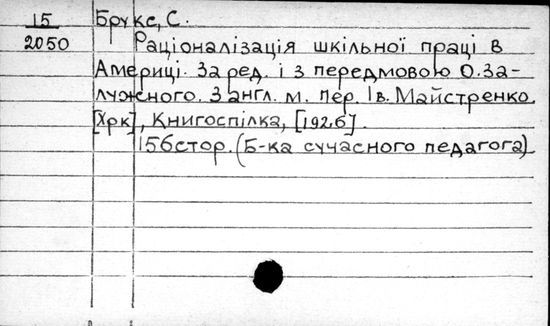 15
2050
Брукс, С.
Раціоналізація шкільної праці в
Америці. За ред. і з передмовою О. За-
лужного. З англ. м. пер. Ів. Майстренко.
[Хрк], Книгоспілка, [1926].
156стор. (Б-ка сучасного педагога)